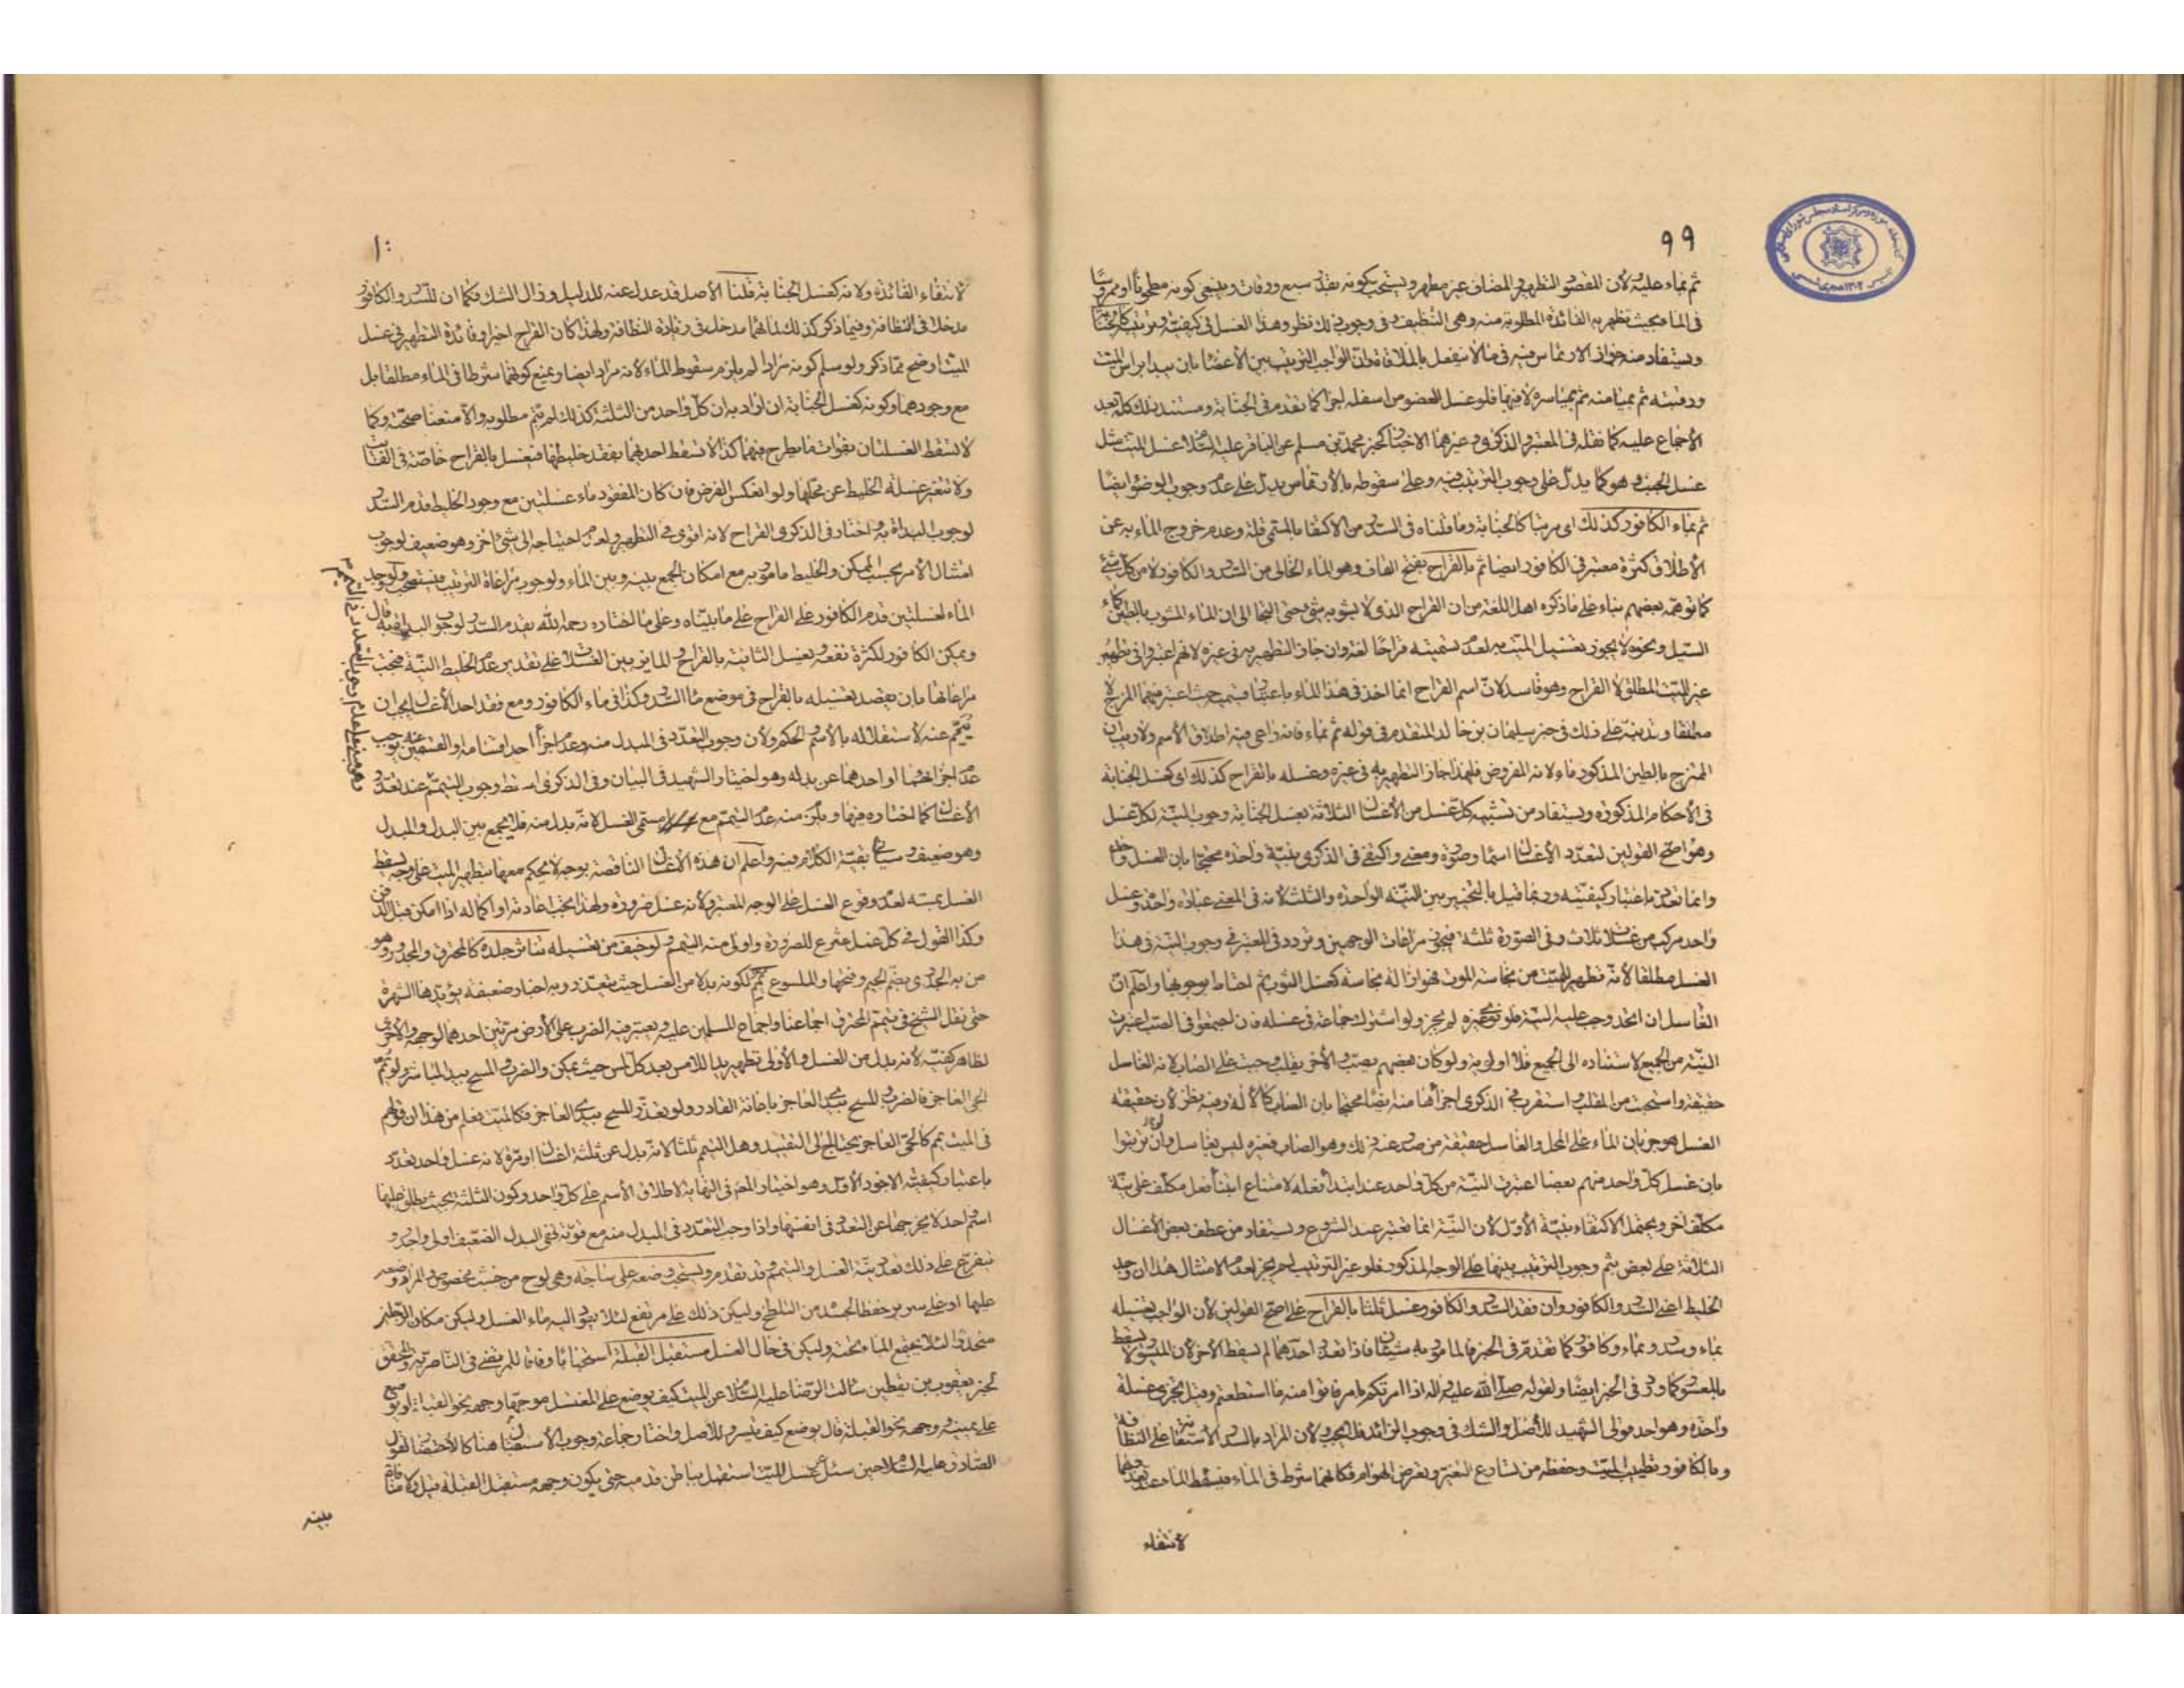 ٩٩
ثم بماء عليه لأن المقصود التطهير والمضاف غير مطهر ويستحب كونه بقدر سبع ورقات وينبغي كونه مطحونا او ممروسا
في الماء بحيث تظهر به الفائدة المطلوبة منه وهى التنظيف وفى وجوب ذلك نظر وهذا الغسل فى كيفيته وترتيبه كالجنابة
ويستفاد منه جواز الارتماس فيه فى ما لا ينفعل بالملاقاة وان الواجب الترتيب بين الأعضاء بان يبدا براس الميت
ورقبته ثم بميامنه ثم بمياسره لا فيها فلو غسل العضو من اسفله اجزا كما تقدم فى الجنابة ومستند ذلك كله بعد
الأجماع عليه كما نقله فى المعتبر والذكرى وغيرهما الاخبار كخبر محمد بن مسلم عن الباقر عليه السلام غسل الميت مثل
غسل الجنب وهو كما يدل على وجوب الترتيب فيه وعلى سقوطه بالأرتماس يدل على عدم وجوب الوضوء ايضا
ثم بماء الكافور كذلك اى مرتبا كالجنابة وما قلناه فى السدر من الاكتفا بالمسمى قلة وعدم خروج الماء به عن
الأطلاق كثرة معتبر فى الكافور ايضا ثم بالقراح بفتح القاف وهو الماء الخالى من السدر والكافور لا من كل شئ
كما توهمه بعضهم بناء على ما ذكره اهل اللغة من ان القراح الذى لا يشوبه شئ حتى التجا الى ان الماء المشوب بالطين كماء
السيل ونحوه لا يجوز تغسيل الميت به لعدم تسميته قراحا لغة وان جاز التطهير به فى غيره لانهم اعتبروا فى تطهير
غير الميت المطلق لا القراح وهو فاسد لان اسم القراح انما اخذ فى هذا الماء باعتبار قسيميه حيث اعتبر فيهما المزج لا
مطلقا وننبه على ذلك فى خبر سليمان بن خالد المتقدم فى قوله ثم بماء فانه راعى فيه اطلاق الأسم ولا ريب ان
الممتزج بالطين المذكور ماء ولانه المفروض فلهذا جاز التطهير به فى غيره وغسله بالقراح كذلك اى كغسل الجنابة
فى الأحكام المذكورة ويستفاد من تشبيه كل غسل من الأغسال الثلاثة بغسل الجنابة وجوب النية لكل غسل
وهو اصح القولين لتعدد الأغسال اسما وصورة ومعنى واكتفى فى الذكرى بنية واحدة محتجا بان الغسل واحد
وانما تعدد باعتبار كيفيته وربما قيل بالتخيير بين النية الواحدة والثلث لانه فى المعنى عبادة واحدة وغسل
واحد مركب من غسلات ثلاث وفى الصورة ثلثة فيجوز مراعات الوجهين وتردد فى المعتبر فى وجوب النية فى هذا
الغسل مطلقا لأنه تطهير للميت من نجاسة الموت فهو ازالة نجاسة كغسل الثوب ثم احتاط بوجوبها واعلم ان
الغاسل ان اتحد وجب عليه النية فلو نوى غيره لم يجز ولو اشترك جماعة فى غسله فان اجتمعوا فى الصب اعتبرت
النية من الجميع لاستناده الى الجميع فلا اولوية ولو كان بعضهم يصب والأخر يقلب وجبت على الصاب لانه الغاسل
حقيقة واستحبت من المقلب واستقرب فى الذكرى اجزائها منه ايضا محتجا بان الصاب كالألة وفيه نظر لان حقيقة
الغسل هو جريان الماء على المحل والغاسل حقيقة من صدر عنه ذلك وهو الصاب فغيره ليس بغاسل ولو ترتبوا
بان غسل كل واحد منهم بعضا اعتبرت النية من كل واحد عند ابتداء فعله لامتناع ابتناء فعل مكلف على نية
مكلف اخر ويحتمل الاكتفاء بنية الأول لأن النية انما تعتبر عند الشروع ويستفاد من عطف بعض الأغسال
الثلاثة على بعض بثم وجوب الترتيب بينها على الوجه المذكور فلو غير الترتيب لم يجز لعدم الامتثال هذا ان وجد
الخليط اعنى السدر والكافور وان فقد السدر والكافور غسل ثلثا بالقراح على اصح القولين لأن الواجب تغسيله
بماء وسدر وبماء وكافور كما تقدم فى الخبر فالمامور به شيئان فاذا تعذر احدهما لم يسقط الأخر لأن الميسور لا يسقط
بالمعسور كما ورد فى الخبر ايضا ولقوله صلى الله عليه واله اذا امرتكم بامر فاتوا منه ما استطعتم وقيل يجزى غسلة
واحدة وهو احد قولى الشهيد للأصل والشك فى وجوب الزائد فلا يجب ولأن المراد بالسدر الاستعانة على النظافة
وبالكافور تطييب الميت وحفظه من تسارع التغير وتعرض الهوام فكانهما شرط فى الماء فيسقط الماء عند تعذرهما
لانتفاء
١٠٠
لانتفاء الفائدة ولانه كغسل الجنابة قلنا الأصل قد عدل عنه للدليل وزال الشك فكما ان للسدر والكافور
مدخلا فى النظافة وفيما ذكر كذلك لمائهما مدخل فى زيادة النظافة ولهذا كان القراح اخيرا وفائدة التطهير فى غسل
الميت اوضح مما ذكر ولو سلم كونه مرادا لم يلزم سقوط الماء لأنه مراد ايضا ويمنع كونهما شرطا فى الماء مطلقا بل
مع وجودهما وكونه كغسل الجنابة ان اراد به ان كل واحد من الثلثة كذلك لم يتم مطلوبه والا منعنا صحته وكما
لا تسقط الغسلتان بفوات ما يطرح فيهما كذا لا تسقط احدهما بفقد خليطها فيغسل بالقراح خاصة فى الفائت
ولا تتغير غسلة الخليط عن محلها ولو انعكس الفرض فان كان المفقود ماء غسلتين مع وجود الخليط قدم السدر
لوجوب البداة به واختار فى الذكرى القراح لانه اقوى فى التطهير ولعدم احتياجه الى شئ اخر وهو ضعيف لوجوب
امتثال الأمر بحسب الممكن والخليط مامور به مع امكان الجمع بينه وبين الماء ولوجوب مراعاة الترتيب فيستصحب ولو وجد
الماء لغسلتين قدم الكافور على القراح على ما بيناه وعلى ما اختاره رحمه الله يقدم السدر لوجوب البداة به قال
ويمكن الكافور لكثرة نفعه ويغسل الثانية بالقراح والمائز بين الغسلات على تقدير عدم الخليط النية فيجب
مراعاتها بان يقصد تغسيله بالقراح فى موضع ماء السدر وكذا فى ماء الكافور ومع فقد احد الأغسال يجب ان
ييمم عنه لاستقلاله بالأسم والحكم ولأن وجوب التعدد فى المبدل منه وعدم اجزاء احد اقسامه او القسمين عنه يوجب
عدم اجزائهما او احدهما عن بدله وهو اختيار الشهيد فى البيان وفى الذكرى اسقط وجوب التيمم عند تعذر
الأغسال كما اختاره فيها ويلزم منه عدم التيمم مع مسمى الغسل لانه بدل منه فلا يجمع بين البدل والمبدل
وهو ضعيف وسياتى بقية الكلام فيه واعلم ان هذه الأغسال الناقصة بوجه لا يحكم معها بتطهير الميت على وجه يسقط
الغسل بمسه لعدم وقوع الغسل على الوجه المعتبر ولأنه غسل ضرورة ولهذا يجب اعادته او اكماله اذا امكن قبل الدفن
وكذا القول فى كل غسل شرع للضرورة واولى منه التيمم ولو خيف من تغسيله تناثر جلده كالمحترق والمجدور وهو
من به الجدرى بضم الجيم وفتحها والملسوع يمم لكونه بدلا من الغسل حيث يتعذر وبه اخبار ضعيفة يؤيدها الشهرة
حتى نقل الشيخ فى تيمم المحترق اجماعنا واجماع المسلمين عليه ويعتبر فيه الضرب على الأرض مرتين احدهما لوجهه والأخرى
لظاهر كفيه لأنه بدل من الغسل والأولى تطهير يد اللامس بعد كل لمس حيث يمكن والضرب والمسح بيد المباشر ولو يمم
الحى العاجز فالضرب والمسح بيدى العاجز باعانة القادر ولو تعذر المسح بيدى العاجز فكالميت يعلم من هذا ان قولهم
فى الميت ييمم كالحى العاجز يحتاج الى التقييد وهل التيمم ثلثا لانه بدل عن ثلثة اغسال او مرة لانه غسل واحد تعدد
باعتبار كيفيته الاجود الأول وهو اختيار المص فى النهاية لاطلاق الأسم على كل واحد وكون الثلثة بحيث يطلق عليها
اسم واحد لا يخرجها عن التعدد فى انفسها واذا وجب التعدد فى المبدل منه مع قوته ففى البدل الضعيف اولى واحرى و
يتفرع على ذلك تعدد نية الغسل والتيمم وقد تقدم ويستحب وضعه على ساجة وهى لوح من خشب مخصوص والمراد وضعه
عليها او على سرير حفظا لجسده من التلطخ وليكن ذلك على مرتفع لئلا يعود اليه ماء الغسل وليكن مكان الرجلين
منحدرا لئلا يجتمع الماء تحته وليكن فى حال الغسل مستقبل القبلة استحبابا وفاقا للمرتضى فى الناصرية والمحقق
لخبر يعقوب بن يقطين سالت الرضا عليه السلام عن الميت كيف يوضع على المغتسل موجها وجهه نحو القبلة او يوضع
على يمينه ووجهه نحو القبلة قال يوضع كيف تيسر وللأصل واختار جماعة وجوب الأستقبال هنا كالأحتضار لقول
الصادق عليه السلام حين سئل عن غسل الميت استقبل بباطن قدميه حتى يكون وجهه مستقبل القبلة قيل ولا منافاة
بينه